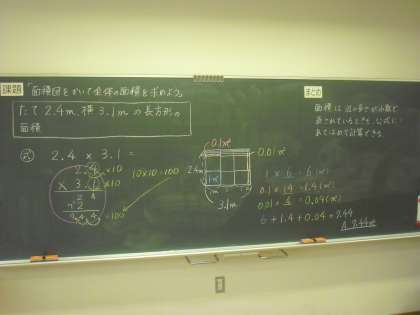 課題
「面積図をかいて全体の面積を求めよう」
たて 2.4m、横 3.1m の長方形の
面積
式 2.4 × 3.1 =
2.4 ×10
× 3.1 ×10
2 4
7 2
7.4 4 ÷100
10×10=100
0.1㎡
0.01㎡
2.4m
1㎡
3.1m
まとめ
面積は辺の長さが小数で
表されているときも、公式に
あてはめて計算できる
1 × 6 = 6(㎡)
0.1 × 14 = 1.4(㎡)
0.01 × 4 = 0.04(㎡)
6 + 1.4 + 0.04 = 7.44
A. 7.44㎡